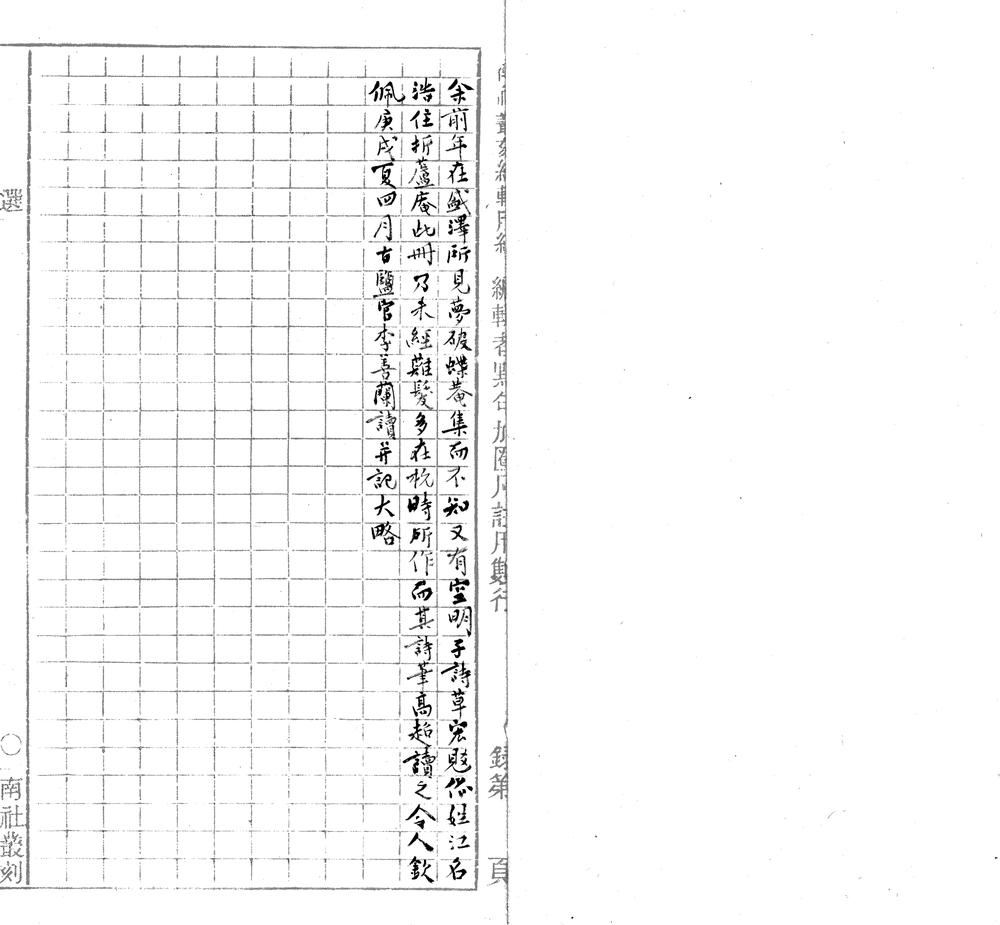 余前年在盛澤所見夢破蝶菴集而不知又有空明子詩草宏覞俗姓江名
浩住折蘆庵此冊乃未經薙髮多在杭時所作而其詩筆高超讀之令人欽
佩庚戌夏四月古鹽官李善蘭讀并記大略
選
〇
南社叢刻
錄第
頁